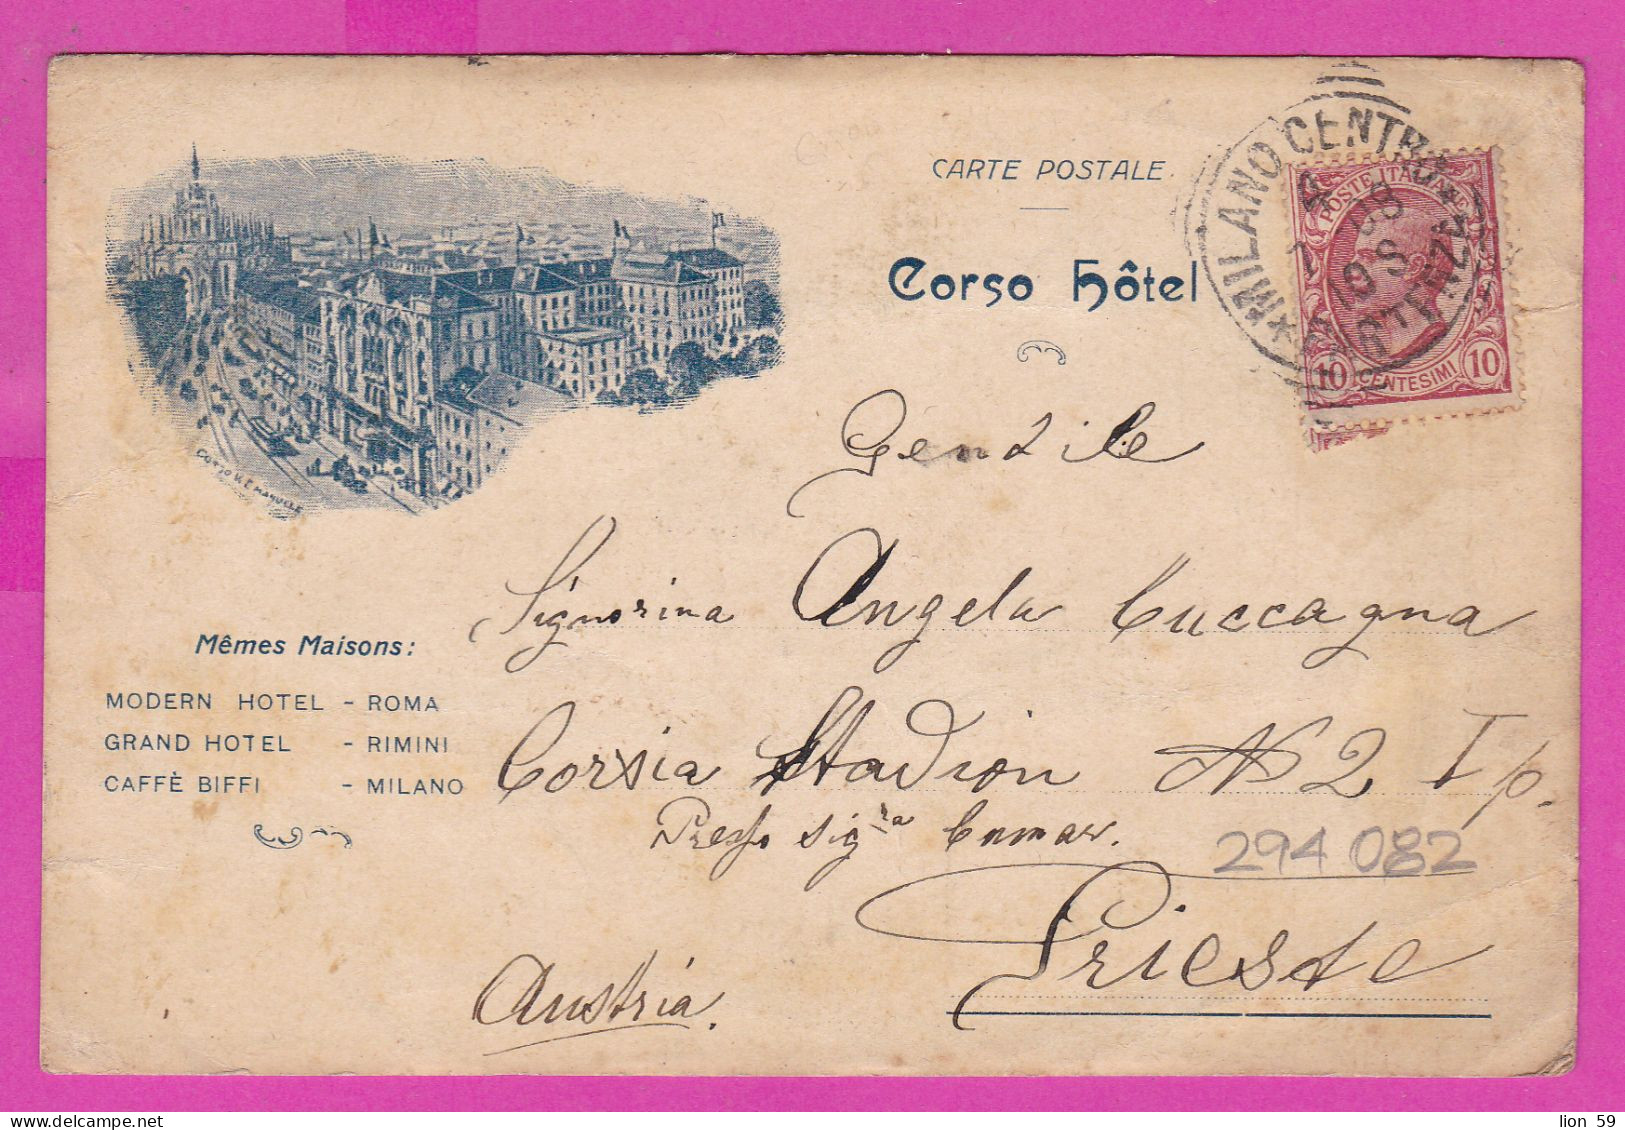 CARTE POSTALE
Corso Hôtel
MILANO CENTRO
POSTE ITALIANE
10 CENTESIMI 10
CORSO V. EMANUELE
Gentile
Signorina Angela Cuccagna
Corsia Stadion N 2 I p.
Presso sig.ra
Trieste
Austria.
Mêmes Maisons:
MODERN HOTEL - ROMA
GRAND HOTEL - RIMINI
CAFFÈ BIFFI - MILANO
294 082
lion 59